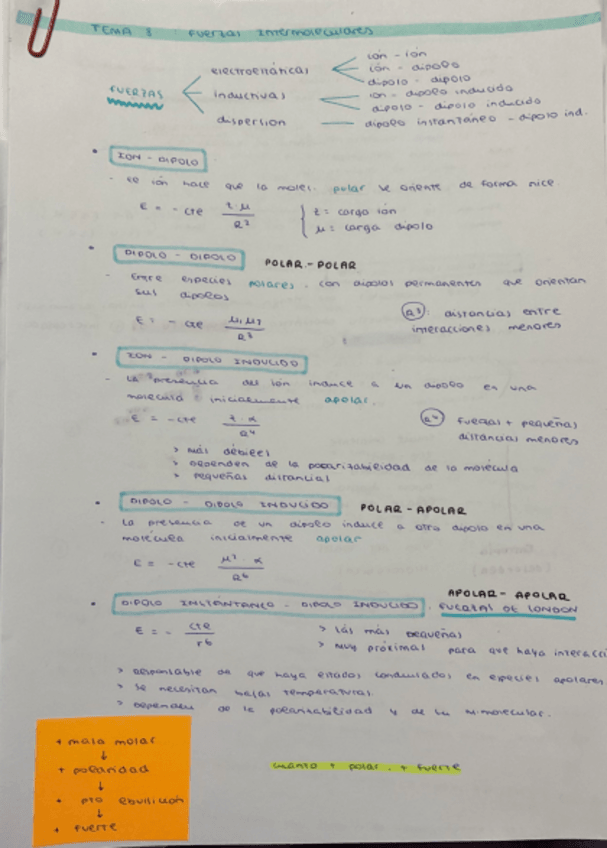 TEMA 3 Fuerzas Intermoleculares
FUERZAS
electrostáticas
ión - ión
ión - dipolo
dipolo - dipolo
inductivas
ion - dipolo inducido
dipolo - dipolo inducido
dispersion
dipolo instantáneo - dipolo ind.
• ION - DIPOLO
- se ión hace que la molec. polar se oriente de forma
E = - cte z·μ / R²
z: carga ión
μ: carga dipolo
• DIPOLO - DIPOLO POLAR - POLAR
- Entre especies polares, con dipolos permanentes que orientan
sus dipolos
E = - cte μ₁μ₂ / R³
R³: distancias entre
interacciones menores
• ION - DIPOLO INDUCIDO
- La presencia del ión induce a un dipolo en una
molécula inicialmente apolar.
E = - cte z·α / R⁴
R⁴ fuerzas + pequeñas
distancias menores
> más débiles
> Dependen de la polaritabilidad de la molécula
> pequeñas distancias
• DIPOLO - DIPOLO INDUCIDO POLAR - APOLAR
- La presencia de un dipolo induce a otro dipolo en una
molécula inicialmente apolar
E = - cte μ²·α / R⁶
• DIPOLO INSTANTÁNEO - DIPOLO INDUCIDO. APOLAR - APOLAR
FUERZAS DE LONDON
E = - cte / r6
> Las más pequeñas
> Muy próximas para que haya interacci
> Responsable de que haya estados condensados en especies apolares
> Se necesitan bajas temperaturas.
> Dependen de la polarizabilidad y de su m.molecular.
+ masa molar
↓
+ polaridad
↓
+ pto ebullición
↓
+ fuerte
cuanto + polar, + fuerte